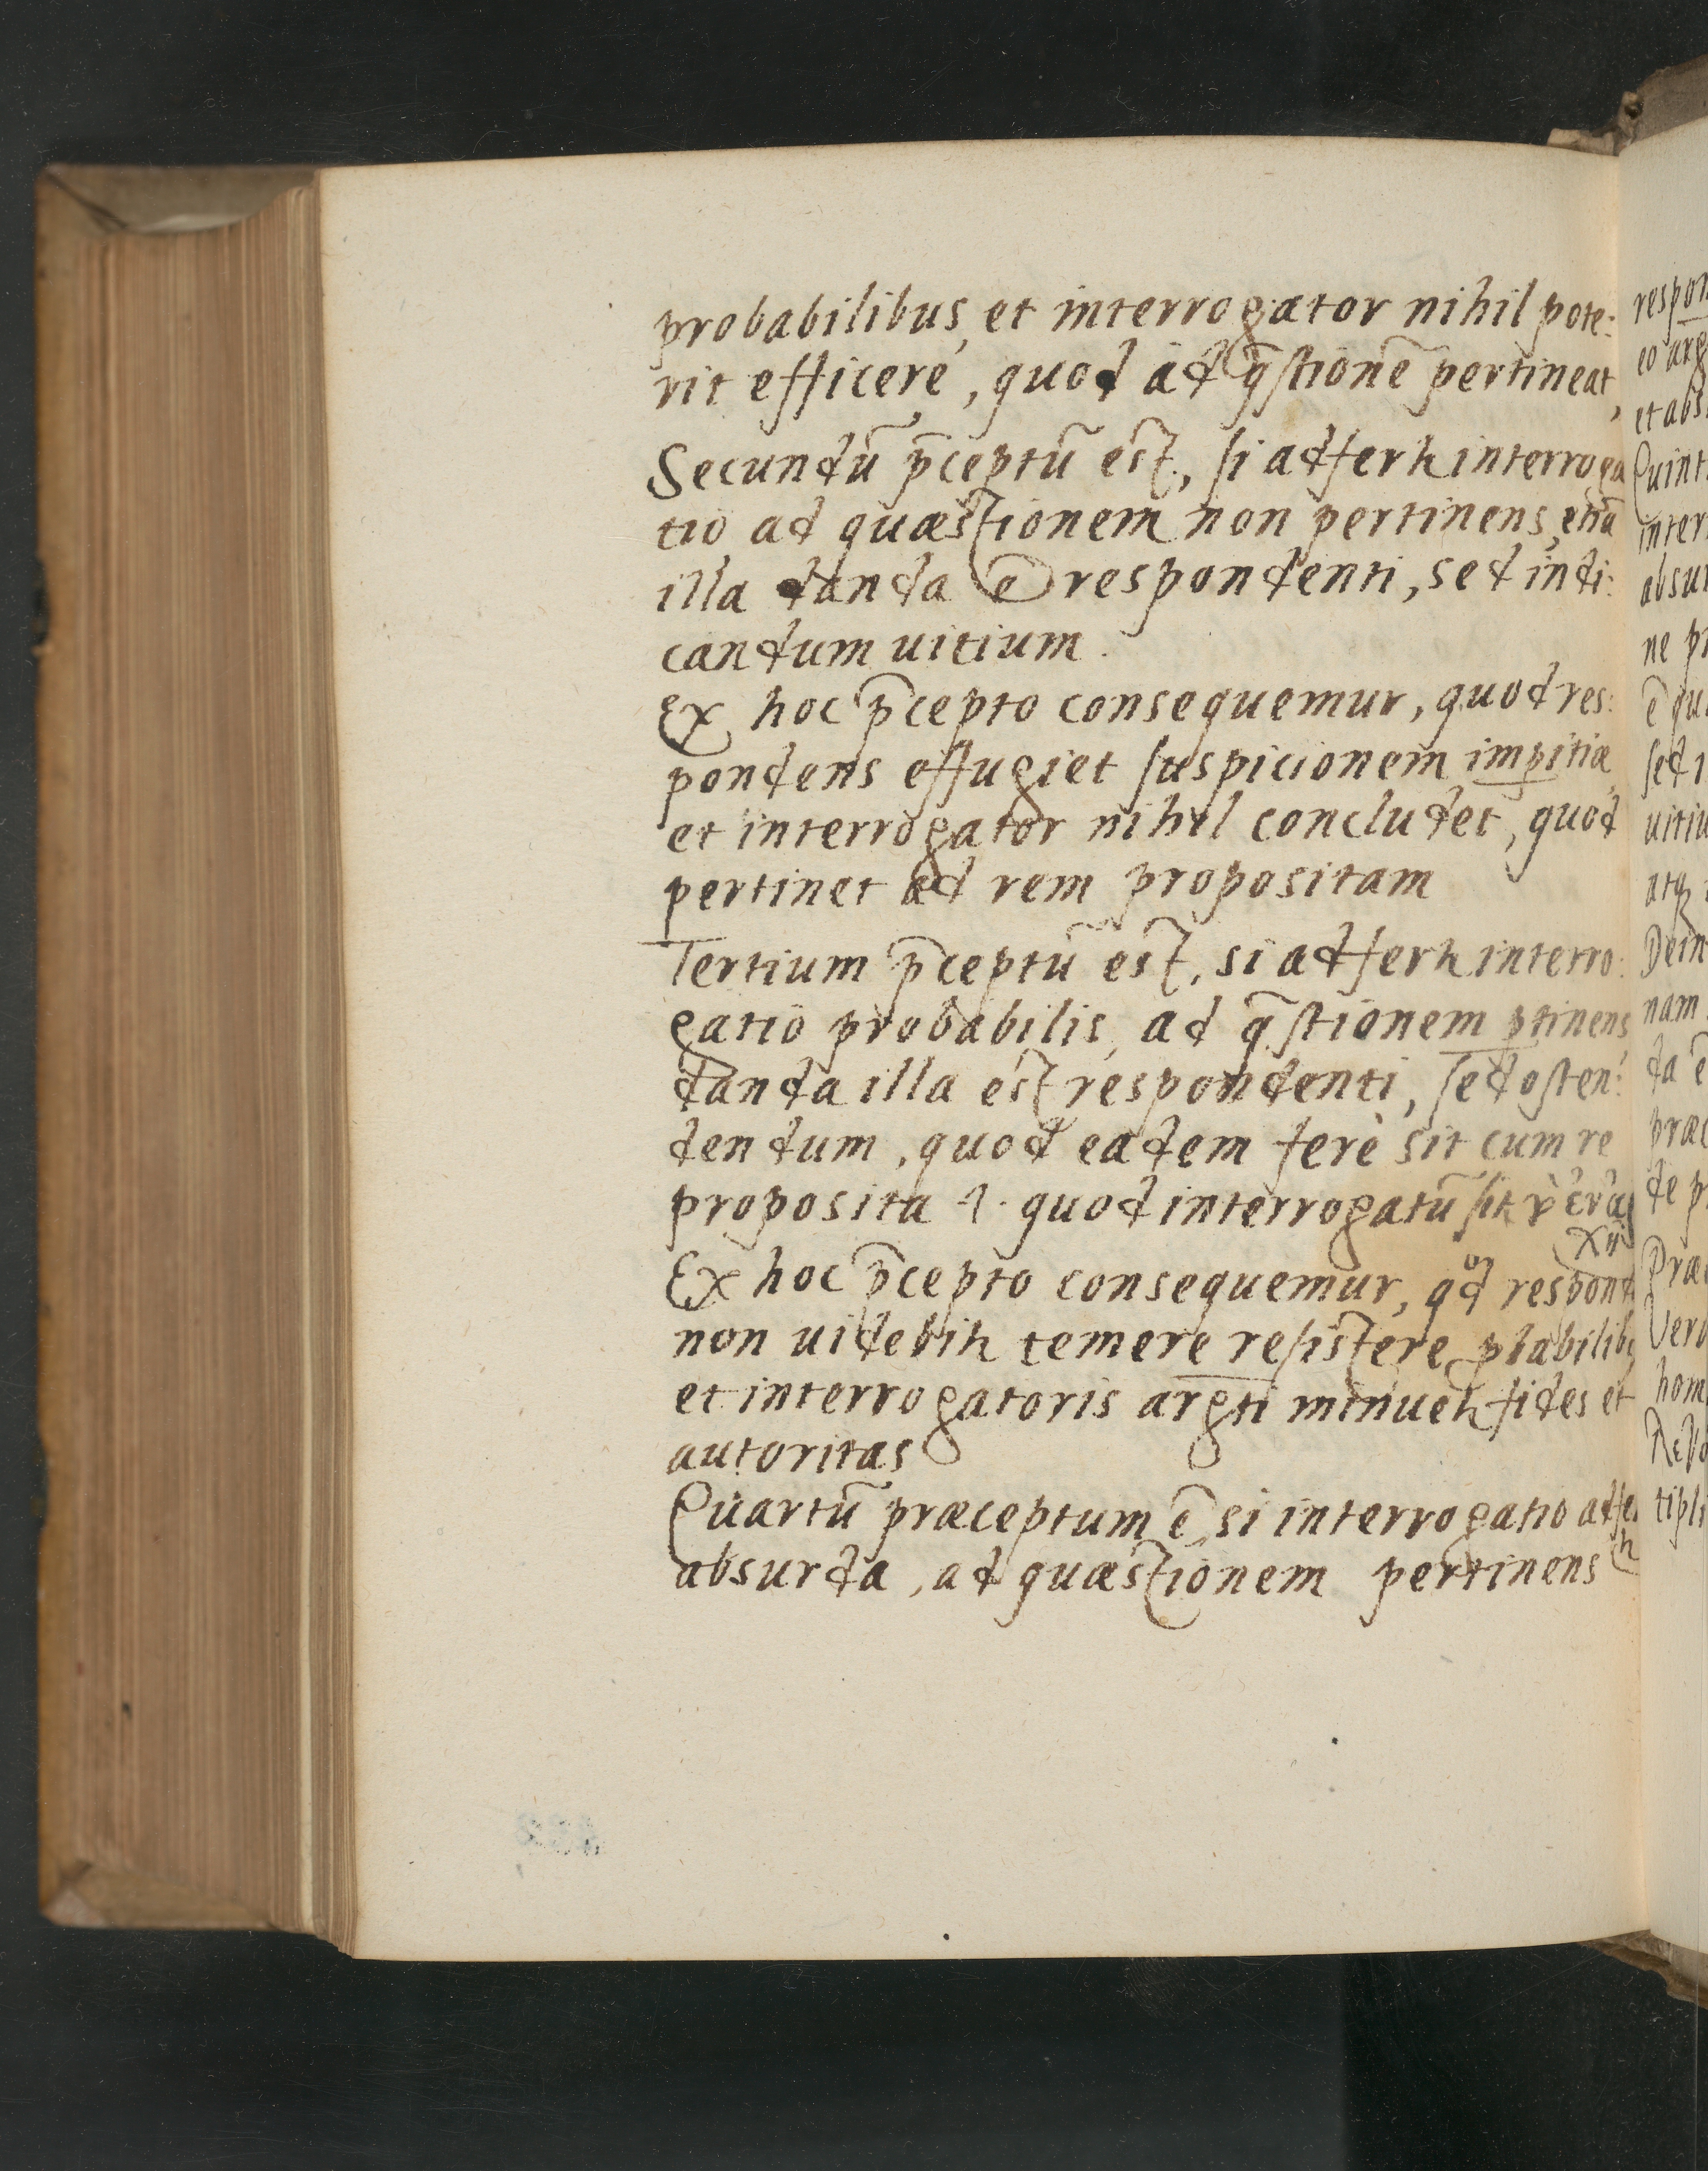 probabilibus, et interrogator nihil pote:
rit efficere, quod ad q̄stionē pertineat,
Secundū p̄ceptū est, si adfertr interroga
tio ad quæstionem non pertinens, etiā
illa danda ē respondenti, sed indi:
candum uitium.
Ex hoc p̄cepto consequemur, quod res:
pondens effugiet suspicionem imꝑitiæ,
et interrogator nihil concludet, quod
pertinet ad rem propositam
Tertium p̄ceptū est, si adfertr interro:
gatio probabilis, ad q̄stionem ꝑtinens
danda illa est respondenti, sed osten:
dendum, quod eadem ferè sit cum re
proposita .i. quod interrogatū sit
Ex hoc p̄cepto consequemur, qd respond
non uidebitr temere resistere
et interrogatoris argti minuetr fides et
autoritas
Quartū præceptum ē, si interrogatio adfer
tr
absurda, ad quæstionem pertinens
respon
eo arg
et abs
Quint
inter
absur
ne pr
ē qu
sed i
uitiu
atq
Dein
nam
da ē
præc
de p
Præ
Vero
hom
tipli